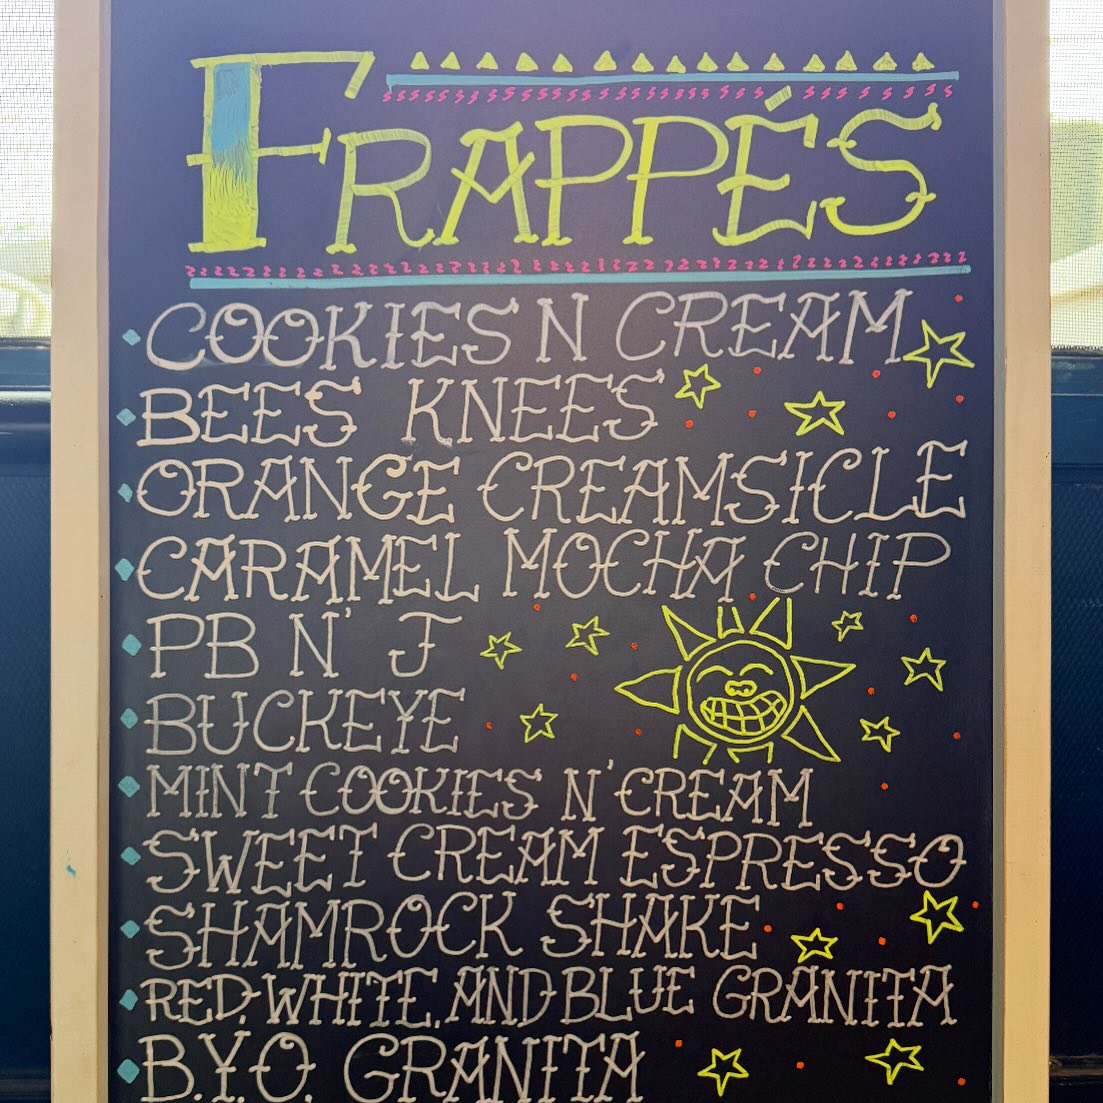 FRAPPÉS
COOKIES N CREAM
BEES KNEES
ORANGE CREAMSICLE
CARAMEL MOCHA CHIP
PB N' J
BUCKEYE
MINT COOKIES N' CREAM
SWEET CREAM ESPRESSO
SHAMROCK SHAKE
RED, WHITE, AND BLUE GRANITA
B.Y.O. GRANITA